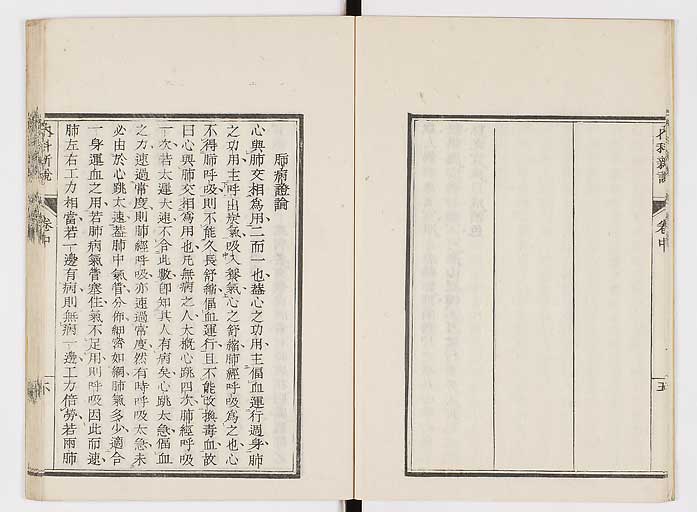 內科新說
卷中
五
肺病證論
心與肺交相爲用二而一也葢心之功用主偪血運行週身肺
之功用主呼出炭氣吸入養氣心之舒縮肺經呼吸爲之也心
不得肺呼吸則不能久長舒縮偪血運行且不能改換毒血故
曰心與肺交相爲用也凡無病之人大槪心跳四次肺經呼吸
一次若太遲太速不合此數卽知其人有病矣心跳太急偪血
之力速過常度則肺經呼吸亦速過常度然有時呼吸太急未
必由於心跳太速葢肺中氣管分佈細密如網肺氣多少適合
一身運血之用若肺病氣管塞住氣不足用則呼吸因此而速
肺左右工力相當若一邊有病則無病一邊工力倍勞若兩肺
內科新說
卷中
六